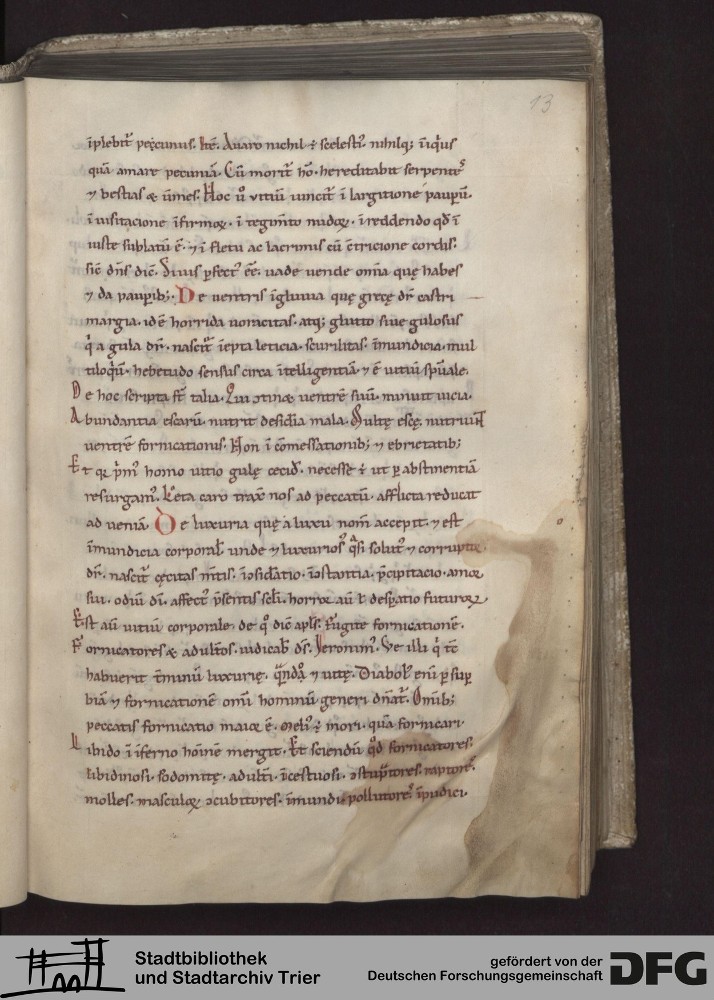 13
īplebit᷑ pecunus. Itē. Auaro nichil ÷ scelesti᷒. nihilq; iniq᷒us
quā amare pecuniā. Cū morit᷑ hō. hereditabit serpentes
⁊ bestias & ūmes. Hoc ů vitiū uincit᷑ ī largitione paupū.
ī uisitacione īfirmoꝝ. ī tegumto nudoꝝ. ī reddendo qd ī
iuste sublatū ē. ⁊ ī fletu ac lacrimis cū cōtricione cordis.
sic dn̄s dic̄. Siuis ꝑfect᷒ ēē. uade uende om̄ia quę habes
⁊ da paupib;. De uentris īgluuia quę grece dr̄ castri
margia. id ē horrida uoracitas. atq; glutto siue gulosus
q̇ a gula dr̄. nascit᷑ īepta leticia. scurilitas. īmundicia. mul
tiloqiū. hebetudo sensus circa ītelligentiā. ⁊ ē vitiū sp̄uale.
De hoc scripta st̄ talia. Qui ↄtinet uentrē suū. minuit uicia.
Abundantia escarū. nutrit desidia mala. Multę escę nutriunt
uentrē fornicationis. Non ī cōmessationib; ⁊ ebrietatib;
Et q̄ p̄m᷒ homo uitio gulę cecid̄. necesse ÷ ut ꝑ abstinentiā
resurgam᷒. Leta caro trax̄ nos ad peccatū. afflicta reducat
ad ueniā. De luxuria quę a luxu nom̄ accepit. ⁊ est
īmundicia corporal̄. unde ⁊ luxurios᷒ q̄si solut᷒ ⁊ corrupt᷒
dr̄. nascit᷑ cęcitas m̄tis. īcōsid̄atio. īↄstantia. p̄cipitacio. amor
sui. odiū dī. affect᷒ p̄sentis scl̄i. horror aū l̄ desꝑatio futuroꝝ.
Est aū uitiū corporale. de q̊ dic̄ apl̄s. Fugite fornicationē.
Fornicatores & adult̄os. iudicab̄ ds̄. Ieronim᷒. Ve illi q̇ tc̄
habuerit t̄minū luxurię. q̄ndo ⁊ uitę. Diabol᷒ enī ꝑ suꝑ
biā ⁊ fornicationē om̄i hominū generi dn̄at᷑. Om̄ib;
peccatis fornicatio maior ē. Meli᷒ ÷ mori. quā fornicari.
Libido ī īferno homīnē mergit. Et sciendū qd̄ fornicatores.
libidinosi. sodomitę. adult̄i. īcestuosi. ↄstupratores. raptores.
molles. masculoꝝ ↄcubitores. īmundi. pollutores. īpudici.
Stadtbibliothek
und Stadtarchiv Trier
gefördert von der
Deutschen Forschungsgemeinschaft
DFG